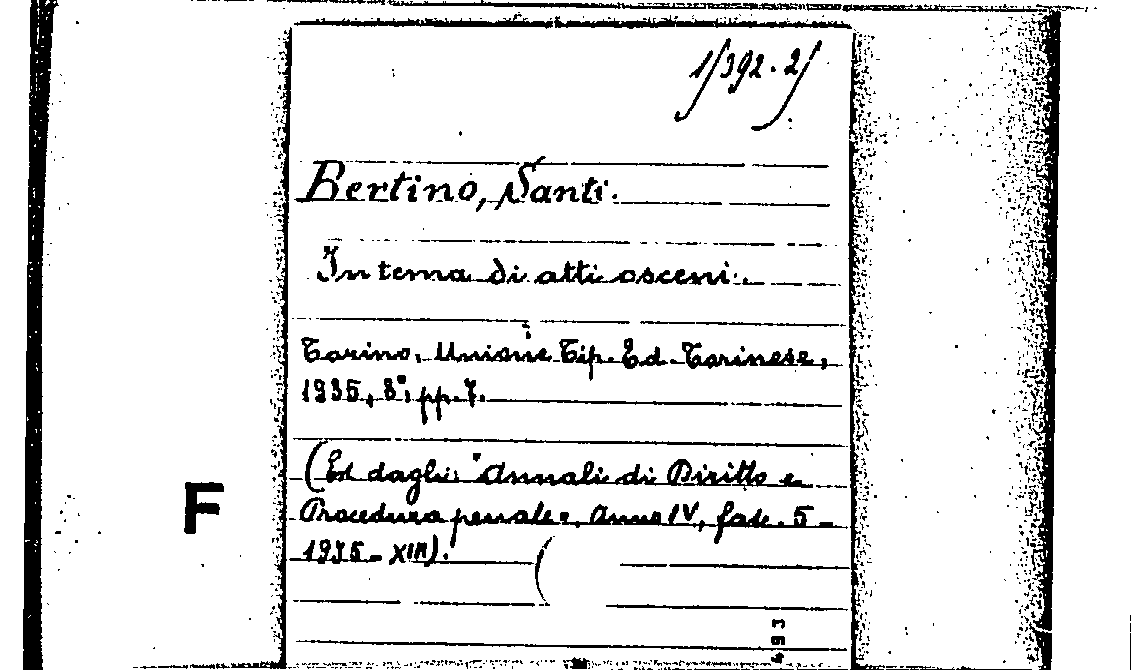 1/392.2/
Bertino, Santi.
In tema di atti osceni.
Torino, Unione Tip. Ed. Torinese,
1935, 8°, pp. 7.
(Est dagli "Annali di Diritto e
Procedura penale", Anno IV, fasc. 5 -
1935 - XIII).
F
493